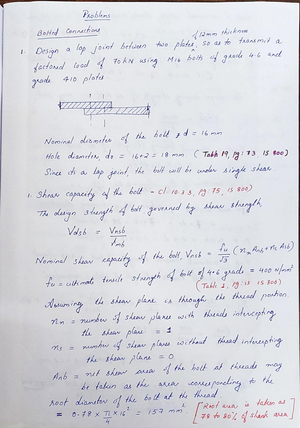 Problems
Bolted Connections
12mm thickness
1. Design a lap joint between two plates, so as to transmit a
factored load of 70kN using M16 bolts of grade 4.6 and
grade 410 plates
Nominal diameter of the bolt, d = 16mm
Hole diameter, do = 16+2 = 18 mm (Table 19, pg: 73 IS 800)
Since it is a lap joint, the bolt will be under single shear
1. Shear capacity of the bolt - cl. 10.3.3, pg. 75, IS 800)
The design strength of bolt governed by shear strength
Vdsb = Vnsb / γmb
Nominal shear capacity of the bolt, Vnsb = fu/√3 (nn Anb + ns Asb)
fu = ultimate tensile strength of bolt of 4.6 grade = 400 N/mm²
(Table 1, pg: 13 IS 800)
Assuming the shear plane is through the thread portion.
nn = number of shear planes with threads intercepting
the shear plane = 1
ns = number of shear planes without thread intercepting
the shear plane = 0
Anb = net shear area of the bolt at threads may
be taken as the area corresponding to the
root diameter of the bolt at the thread.
= 0.78 × π/4 × 16² = 157 mm² [Root area is taken as
78 to 80% of shank area]